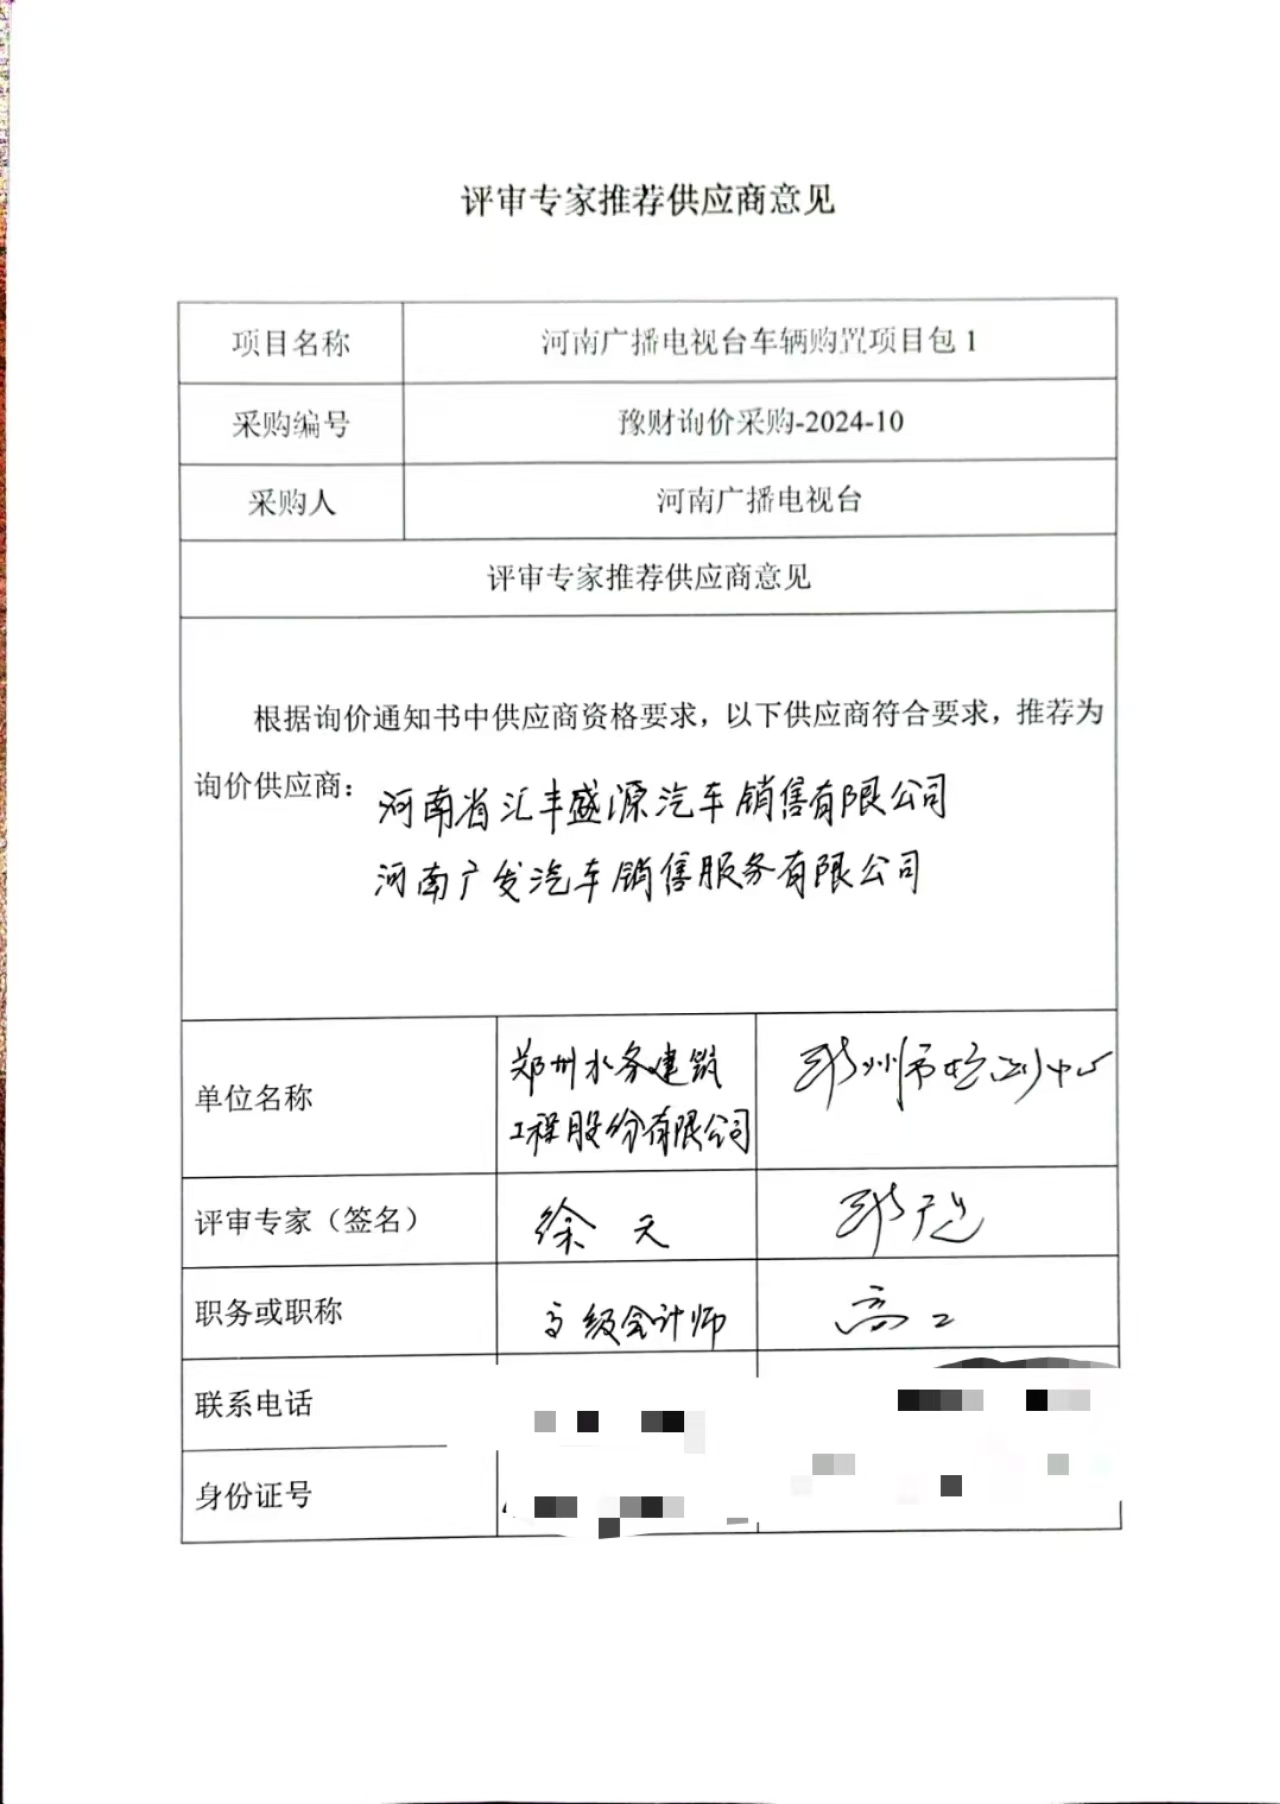 评审专家推荐供应商意见
项目名称 河南广播电视台车辆购置项目包 1
采购编号 豫财询价采购-2024-10
采购人 河南广播电视台
评审专家推荐供应商意见
根据询价通知书中供应商资格要求，以下供应商符合要求，推荐为
询价供应商：
河南省汇丰盛源汽车销售有限公司
河南广发汽车销售服务有限公司
单位名称
郑州水务建筑
工程股份有限公司
州市 中心
评审专家（签名） 徐天
职务或职称 高级会计师 高工
联系电话
身份证号